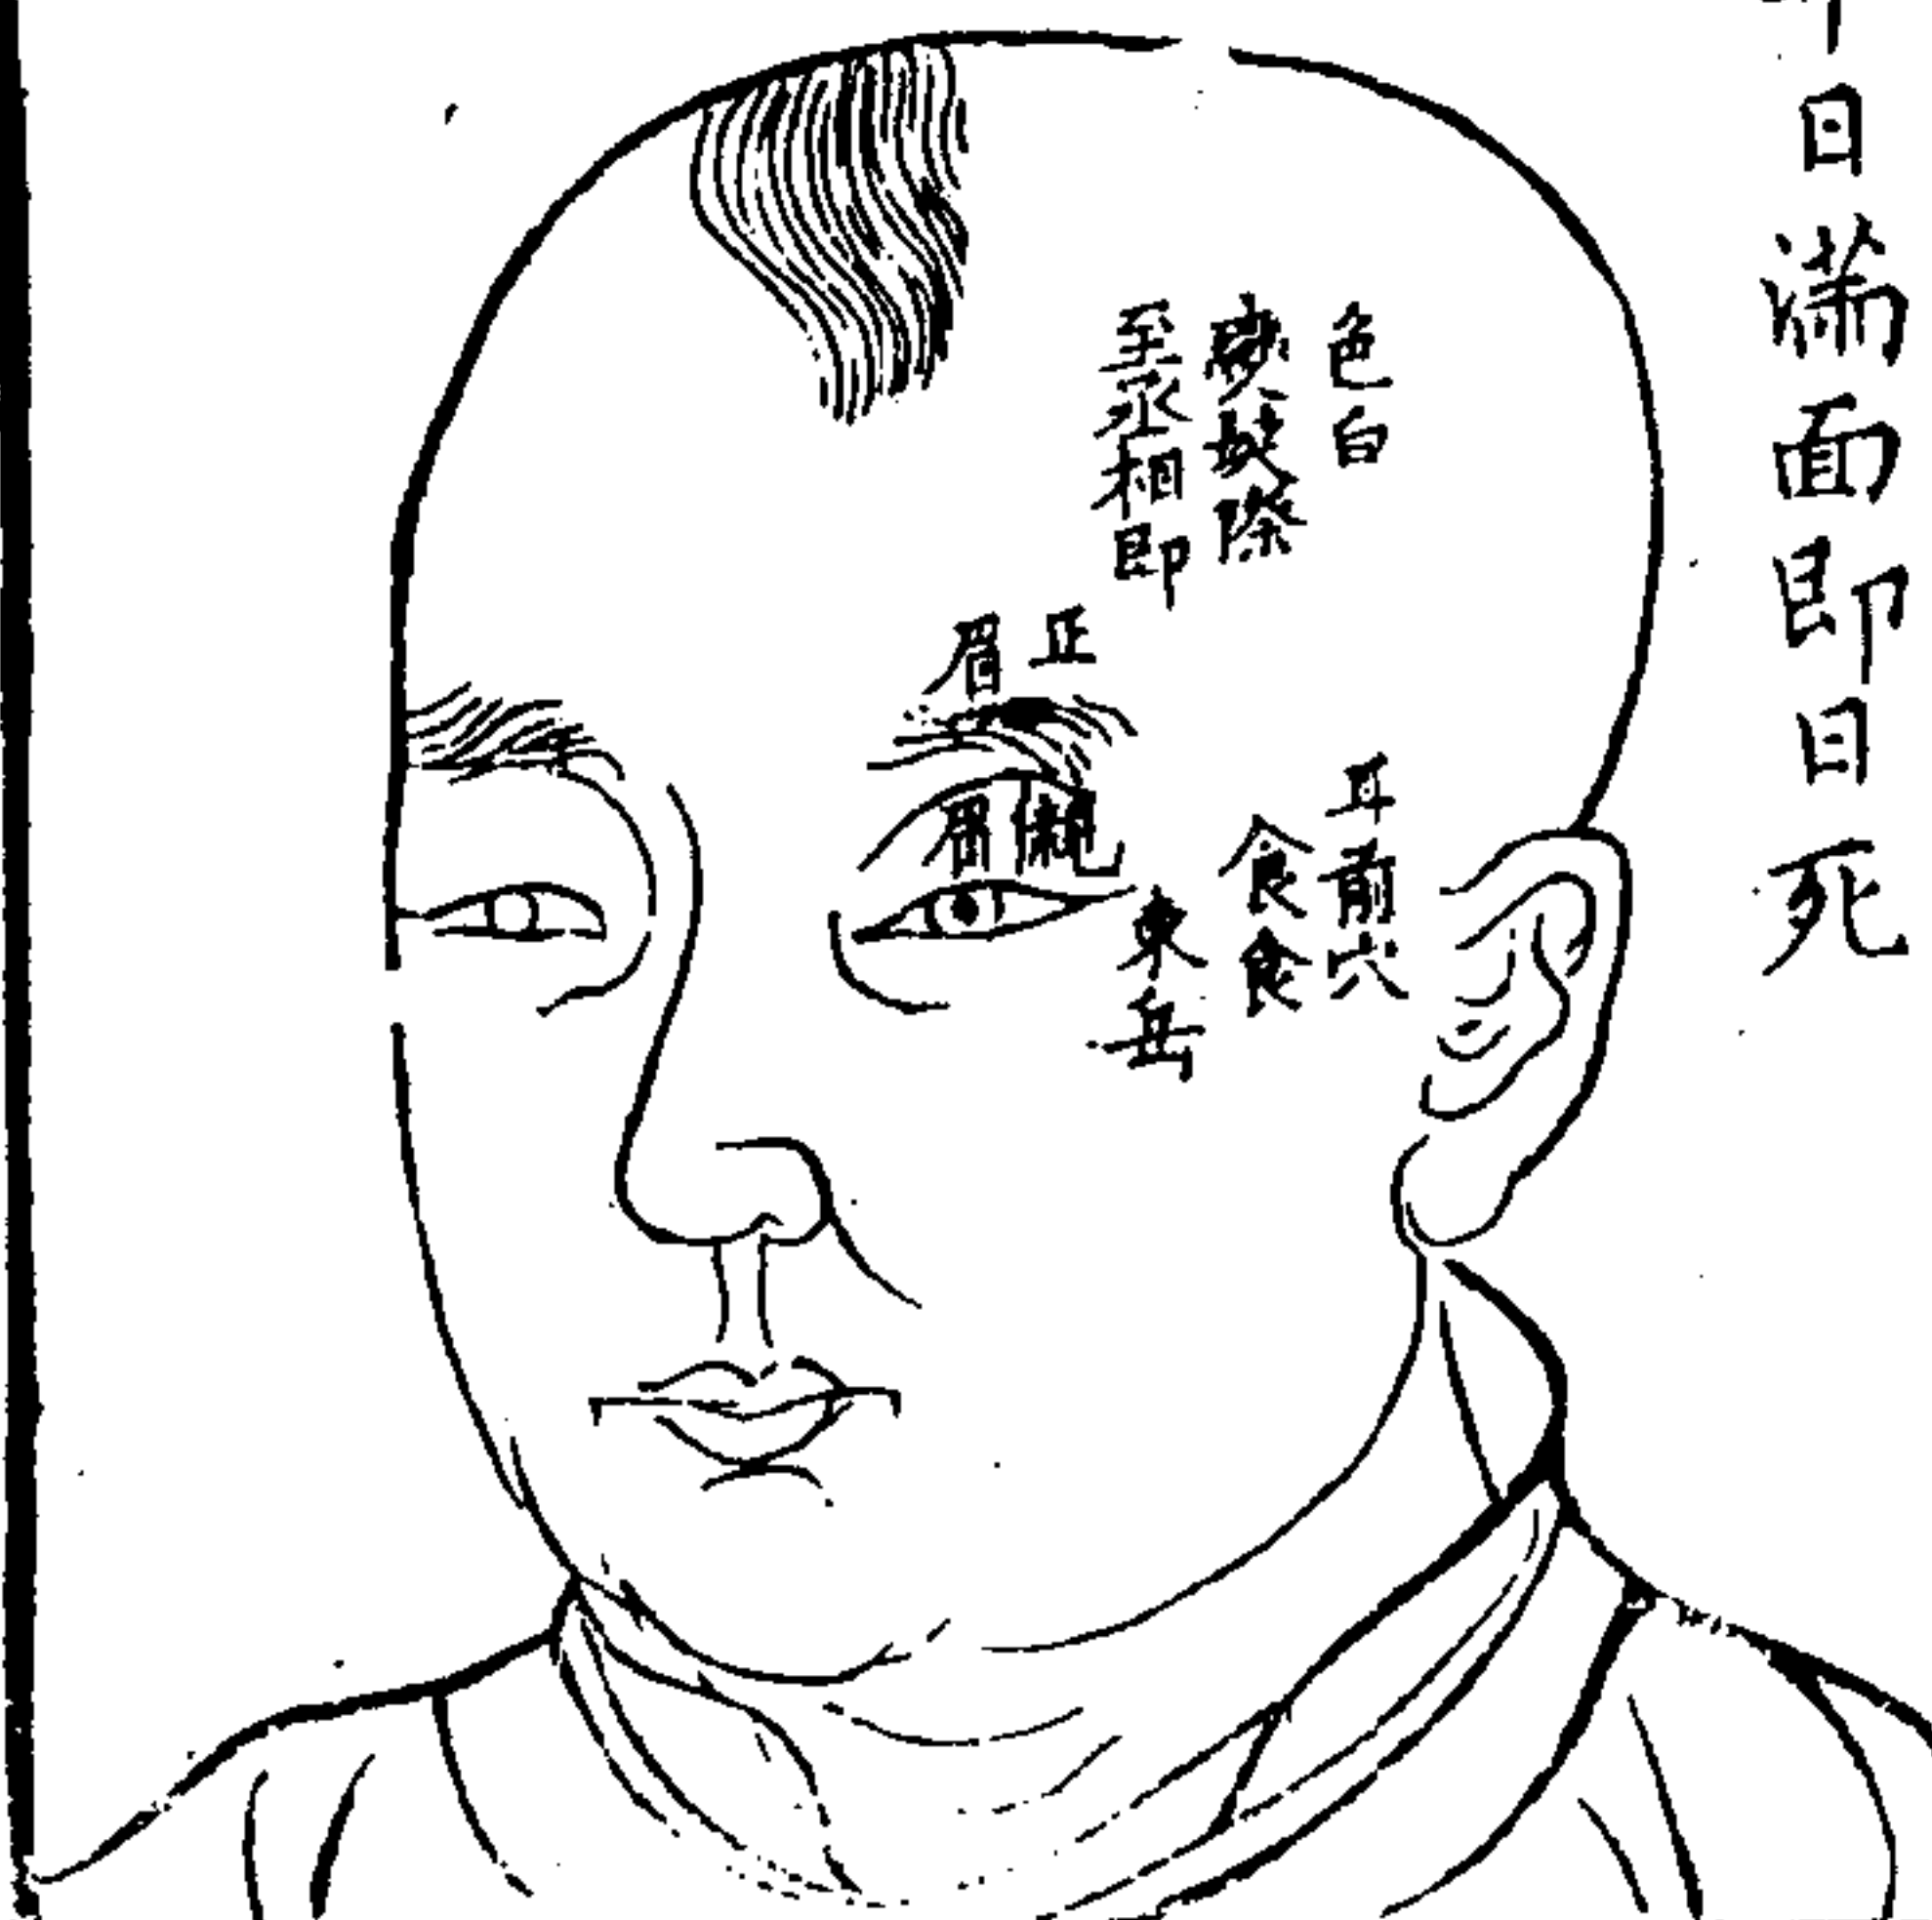 日滿面即日死
色白
髮際
至丞相即
正
眉
眉
耳前穴
食食
東岳